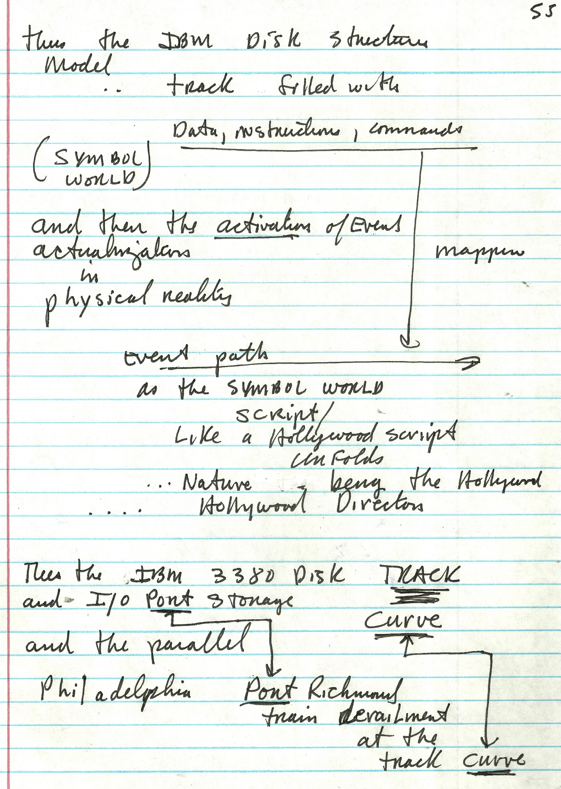 55
thus the IBM Disk Structure
Model
.. track filled with
Data, instructions, commands
(SYMBOL
WORLD)
and then the activation of Event
actualization
in
physical reality
mapping
Event path
as the SYMBOL WORLD
SCRIPT/
Like a Hollywood script
unFolds
... Nature . being the Hollywood
.... Hollywood Director
Thus the IBM 3380 Disk TRACK
and I/O Port Storage
Curve
and the parallel
Philadelphia Port Richmond
train derailment
at the
track curve